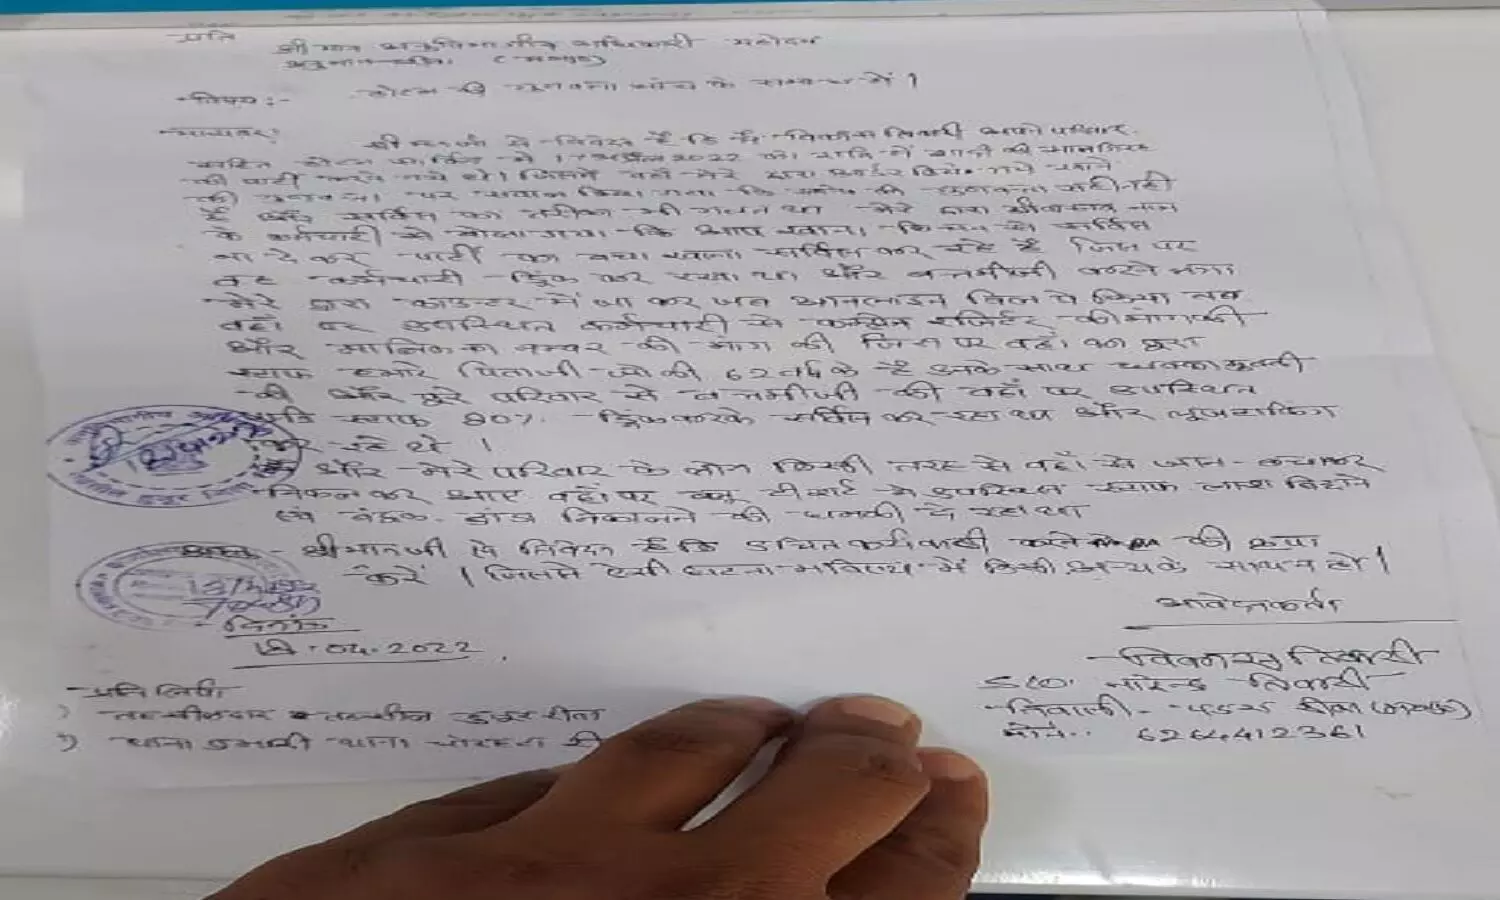 प्रति
श्रीमान अनुविभागीय अधिकारी महोदय
(म०प्र०)
विषय :- होटल की गुणवत्ता जांच के सम्बन्ध में।
मान्यवर,
श्रीमान जी से निवेदन है कि मैं तिवारी अपने परिवार
सहित होटल में 17 अप्रैल 2022 को रात्रि में शादी की सालगिरह
की पार्टी करने गये थे। जिसमें वहाँ मेरे द्वारा आर्डर किये गये खाने
की गुणवत्ता पर सवाल किया गया कि की गुणवत्ता सही नही
है और सर्विस का तरीका भी गलत था मेरे द्वारा नाम
के कर्मचारी से बोला गया कि आप खाना किचन से सर्विस
ना दे कर पार्टी का बचा खाना सर्विस कर रहे है जिस पर
वह कर्मचारी ड्रिंक कर रखा था और बत्तमीजी करने लगा
मेरे द्वारा काउन्टर में जा कर जब आनलाइन बिल पे किया तब
वहाँ पर उपस्थित कर्मचारी से कम्प्लेन रजिस्टर की मांग की
और मालिक का नम्बर की मांग की जिस पर वहाँ का पूरा
स्टाफ हमारे पिताजी जो की 62 वर्ष के है उनके साथ धक्का मुक्की
की और पूरे परिवार से बत्तमीजी की वहाँ पर उपस्थित
स्टाफ 80% ड्रिंक करके सर्विस कर रहा था और
कर रहे थे।
और मेरे परिवार के लोग किसी तरह से वहाँ से जान बचाकर
निकल कर आए वहाँ पर ब्लू टीशर्ट में उपस्थित स्टाफ लाश बिछाने
एवं बंदूक डंडा निकालने की धमकी दे रहा था
अतः श्रीमानजी से निवेदन है कि उचित कार्यवाही करने की कृपा
करें। जिससे ऐसी घटना भविष्य में किसी अन्य के साथ न हो।
आवेदनकर्ता
दिनांक
.04.2022
तिवारी
S/O. नरेन्द्र तिवारी
निवासी - रीवा (म०प्र०)
मोन.. 6264412361
प्रतिलिपि
1) तहसीलदार तहसील हुजूर रीवा
2) थाना प्रभारी थाना चोरहटा